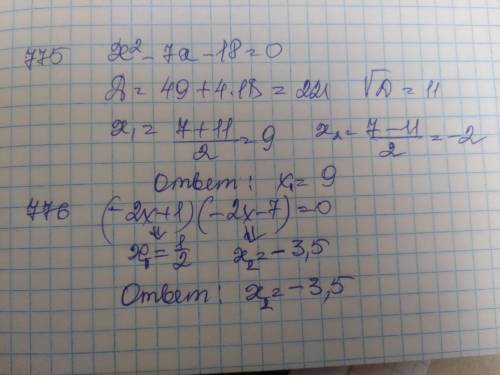 775 x² - 7x - 18 = 0
D = 49 + 4·18 = 221 √D = 11
x₁ = (7+11)/2 = 9 x₂ = (7-11)/2 = -2
Ответ: x₁ = 9
776 (-2x+1)(-2x-7)=0
x₁ = 1/2 x₂ = -3,5
Ответ: x₂ = -3,5